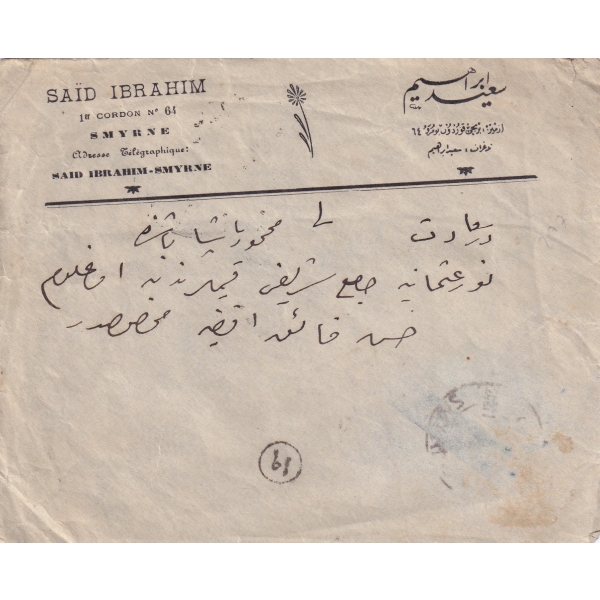 SAÏD IBRAHIM
1er CORDON No 64
SMYRNE
Adresse Télégraphique:
SAID IBRAHIM-SMYRNE
سعيد ابراهيم
ازمير: برنجى قوردون نومرو ٦٤
تلغراف: سعيد ابراهيم
محمود پاشا
نور عثمانيه جامع شريفى
حسن فائق افندى يه مخصوصدر
19